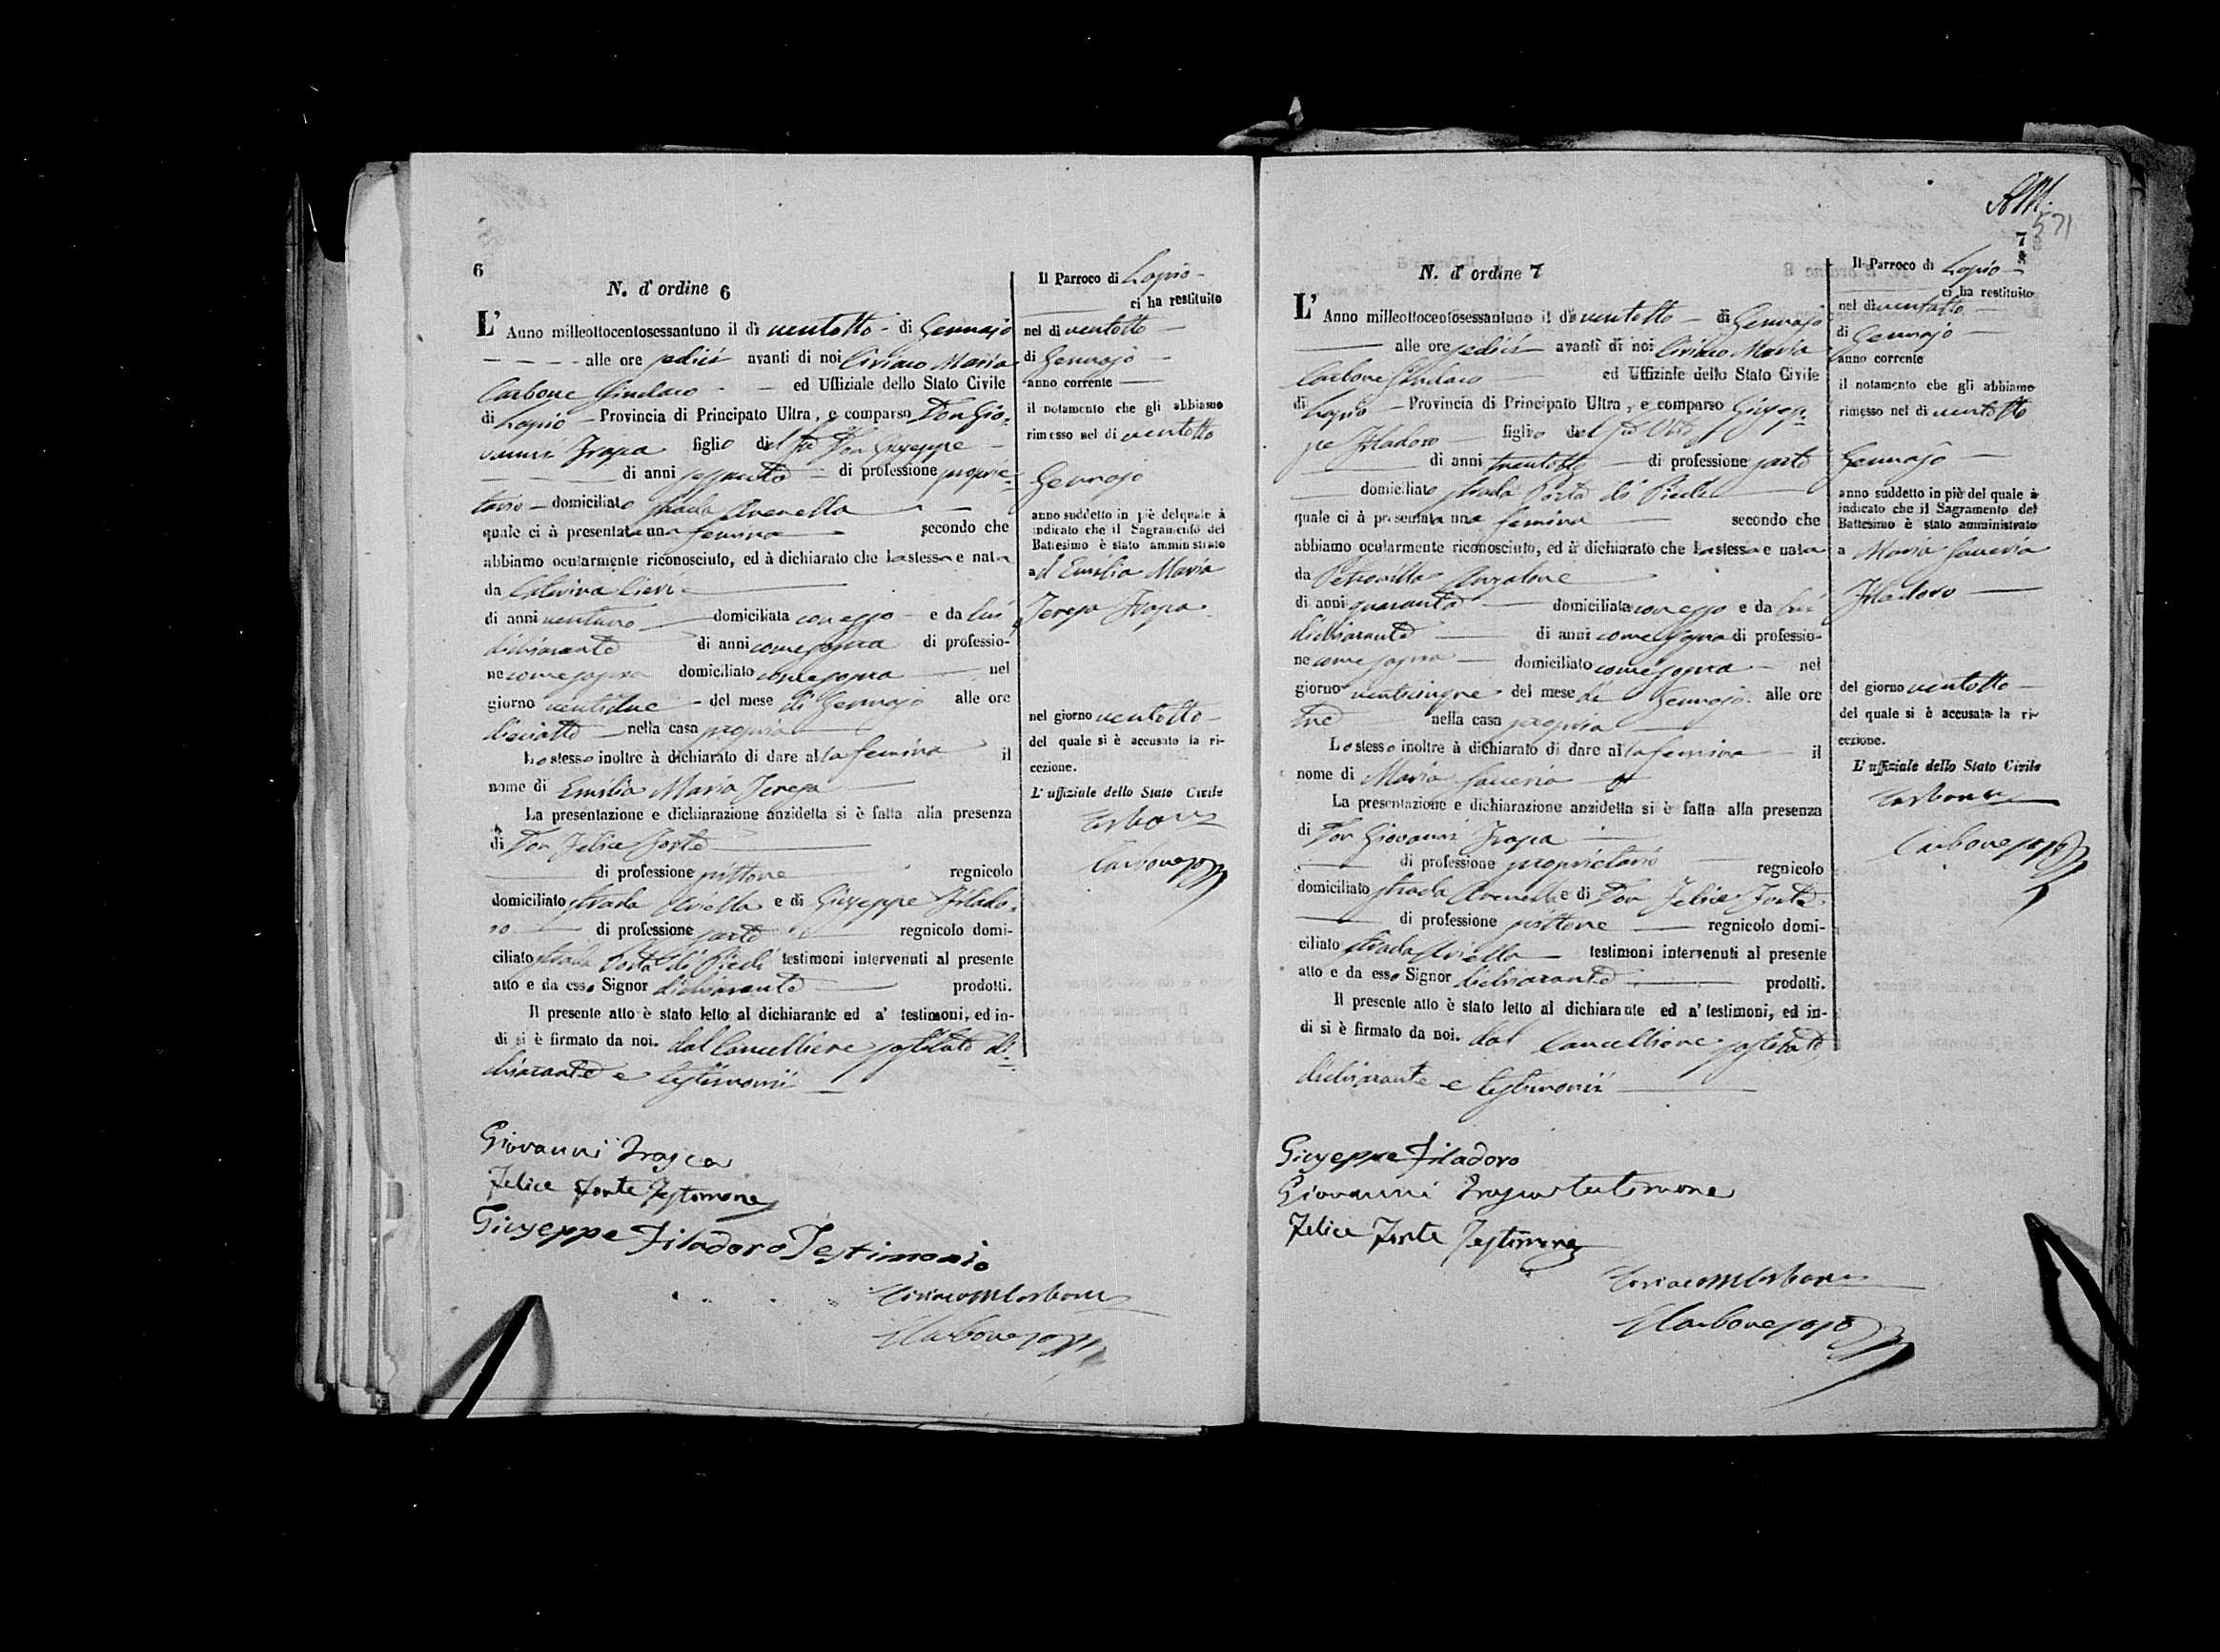 6
N. d' ordine 6
L' Anno milleottocentosessantuno il dì ventotto - di Gennajo
alle ore sedici avanti di noi Ciriaco Maria
Carbone Sindaco ed Uffiziale dello Stato Civile
di Lapio - Provincia di Principato Ultra, e comparso Don Gio-
vanni figlio del fu Don Giuseppe
di anni di professione proprie-
tario - domiciliato strada Avenella
quale ci à presentata una femina secondo che
abbiamo ocularmente riconosciuto, ed à dichiarato che la stessa e nata
da Caterina
di anni ventuno domiciliata con esso e da lui
dichiarante di anni come sopra di professio-
ne come sopra domiciliato come sopra nel
giorno ventidue del mese di Gennajo alle ore
diciotto nella casa propria
Lo stesso inoltre à dichiarato di dare alla femina il
nome di Emilia Maria Teresa
La presentazione e dichiarazione anzidetta si è fatta alla presenza
di Don Felice Forte
di professione pittore regnicolo
domiciliato strada Ariella e di Giuseppe Filado-
ro di professione sarto regnicolo domi-
ciliato strada Porta di Piedi testimoni intervenuti al presente
atto e da esso Signor dichiarante prodotti.
Il presente atto è stato letto al dichiarante ed a' testimoni, ed in-
di si è firmato da noi. dal Cancelliere sostituto di-
chiarante e testimonii
Giovanni
Felice Forte Testimone
Giuseppe Filadoro Testimonio
Ciriaco M Carbone
Carbone
Il Parroco di Lapio
ci ha restituito
nel dì ventotto
di Gennajo
anno corrente
il notamento che gli abbiamo
rimesso nel dì ventotto
Gennajo
anno suddetto in piè del quale à
indicato che il Sagramento del
Battesimo è stato amministrato
ad Emilia Maria
Teresa
nel giorno ventotto
del quale si è accusato la ri-
cezione.
L' uffiziale dello Stato Civile
Carbone
Carbone
571
7
N. d' ordine 7
L' Anno milleottocentosessantuno il dì ventotto - di Gennajo
alle ore sedici avanti di noi Ciriaco Maria
Carbone Sindaco ed Uffiziale dello Stato Civile
di Lapio - Provincia di Principato Ultra, e comparso Giusep-
pe Filadoro figlio del fu
di anni trentotto di professione sarto
domiciliato strada Porta di Piedi
quale ci à presentata una femina secondo che
abbiamo ocularmente riconosciuto, ed à dichiarato che la stessa e nata
da Petronilla Anzalone
di anni quaranta domiciliata con esso e da lui
dichiarante di anni come sopra di professio-
ne come sopra domiciliato come sopra nel
giorno venticinque del mese di Gennajo alle ore
tre nella casa propria
Lo stesso inoltre à dichiarato di dare alla femina il
nome di Maria Saveria
La presentazione e dichiarazione anzidetta si è fatta alla presenza
di Don Giovanni
di professione proprietario regnicolo
domiciliato strada Avenella e di Don Felice Forte
di professione pittore regnicolo domi-
ciliato strada Ariella testimoni intervenuti al presente
atto e da esso Signor dichiarante prodotti.
Il presente atto è stato letto al dichiarante ed a' testimoni, ed in-
di si è firmato da noi. dal Cancelliere sostituto
dichiarante e testimonii
Giuseppe Filadoro
Giovanni testimone
Felice Forte Testimone
Ciriaco M Carbone
Carbone
Il Parroco di Lapio
ci ha restituito
nel dì ventotto
di Gennajo
anno corrente
il notamento che gli abbiamo
rimesso nel dì ventotto
Gennajo
anno suddetto in piè del quale à
indicato che il Sagramento del
Battesimo è stato amministrato
a Maria Saveria
Filadoro
del giorno ventotto
del quale si è accusata la ri-
cezione.
L' uffiziale dello Stato Civile
Carbone
Carbone